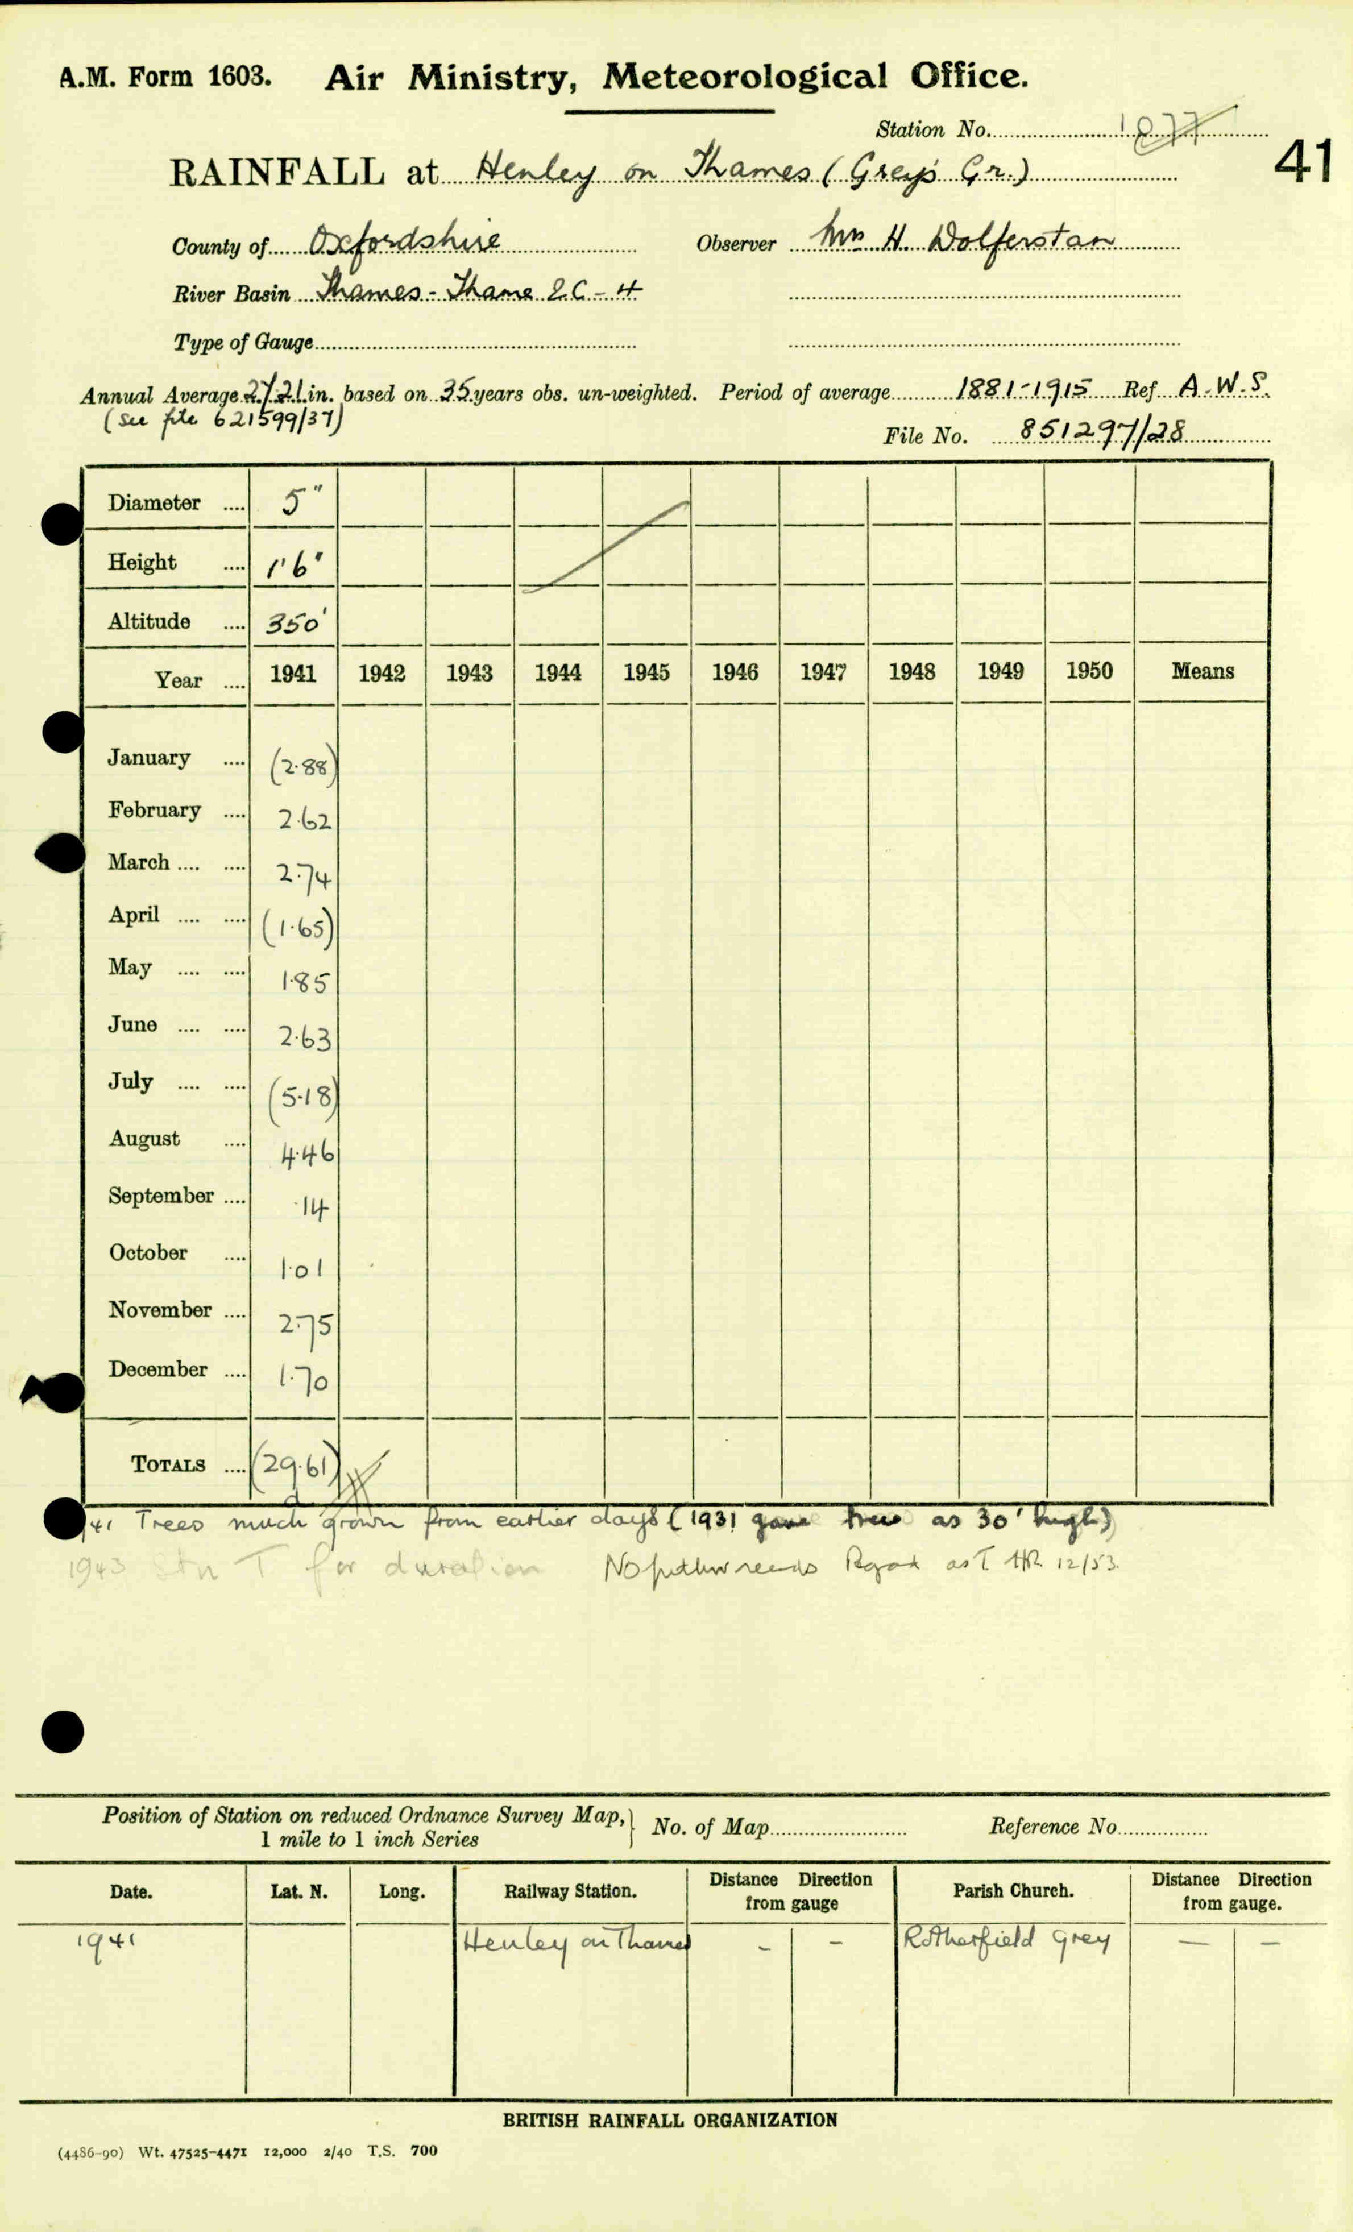 A.M. Form 1603. Air Ministry, Meteorological Office.
Station No. 1077
41
RAINFALL at Henley on Thames (Greys Gr.)
County of Oxfordshire Observer Mrs H. Wolferstan
River Basin Thames - Thame 2C-4
Type of Gauge
Annual Average 27.21 in. based on 35 years obs. un-weighted. Period of average 1881-1915 Ref A.W.S.
(see file 621599/37)
File No. 851297/28
Diameter .... 5"
Height .... 1'6"
Altitude .... 350'
Year .... 1941 1942 1943 1944 1945 1946 1947 1948 1949 1950 Means
January .... (2.88)
February .... 2.62
March .... .... 2.74
April .... .... (1.65)
May .... .... 1.85
June .... .... 2.63
July .... .... (5.18)
August .... 4.46
September .... .14
October .... 1.01
November .... 2.75
December .... 1.70
TOTALS .... (29.61)
d
41 Trees much grown from earlier days (1931 gave tree as 30' high)
1943 Stn T for duration No further as T 12/53
Position of Station on reduced Ordnance Survey Map, 1 mile to 1 inch Series } No. of Map Reference No.
Date. Lat. N. Long. Railway Station. Distance Direction from gauge Parish Church. Distance Direction from gauge.
1941 Henley on Thames - - Rotherfield Grey - -
BRITISH RAINFALL ORGANIZATION
(4486-90) Wt. 47525-4471 12,000 2/40 T.S. 700